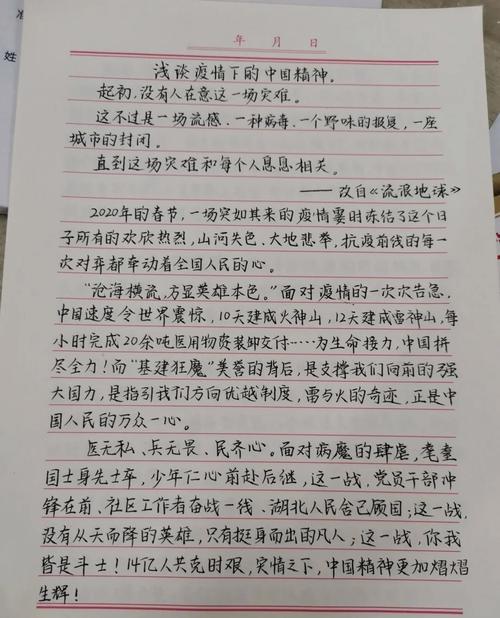 准
姓
年 月 日
浅谈疫情下的中国精神。
起初,没有人在意这一场灾难。
这不过是一场流感、一种病毒、一个野味的报复,一座
城市的封闭。
直到这场灾难和每个人息息相关。
——改自《流浪地球》
2020年的春节,一场突如其来的疫情霎时冻结了这个日
子所有的欢欣热烈,山河失色、大地悲举,抗疫前线的每一
次对弈都牵动着全国人民的心。
"沧海横流,方显英雄本色。"面对疫情的一次次告急,
中国速度令世界震惊,10天建成火神山,12天建成雷神山,每
小时完成20余吨医用物资装卸交付……为生命接力,中国拼
尽全力!而"基建狂魔"美誉的背后,是支撑我们向前的强
大国力,是指引我们方向优越制度,雷与火的奇迹,正是中
国人民的万众一心。
医无私、兵无畏、民齐心。面对病魔的肆虐,耄耋
国士身先士卒,少年仁心前赴后继,这一战,党员干部冲
锋在前、社区工作者奋战一线、湖北人民舍己顾国;这一战,
没有从天而降的英雄,只有挺身而出的凡人;这一战,你我
皆是斗士!14亿人共克时艰,灾情之下,中国精神更加熠熠
生辉!